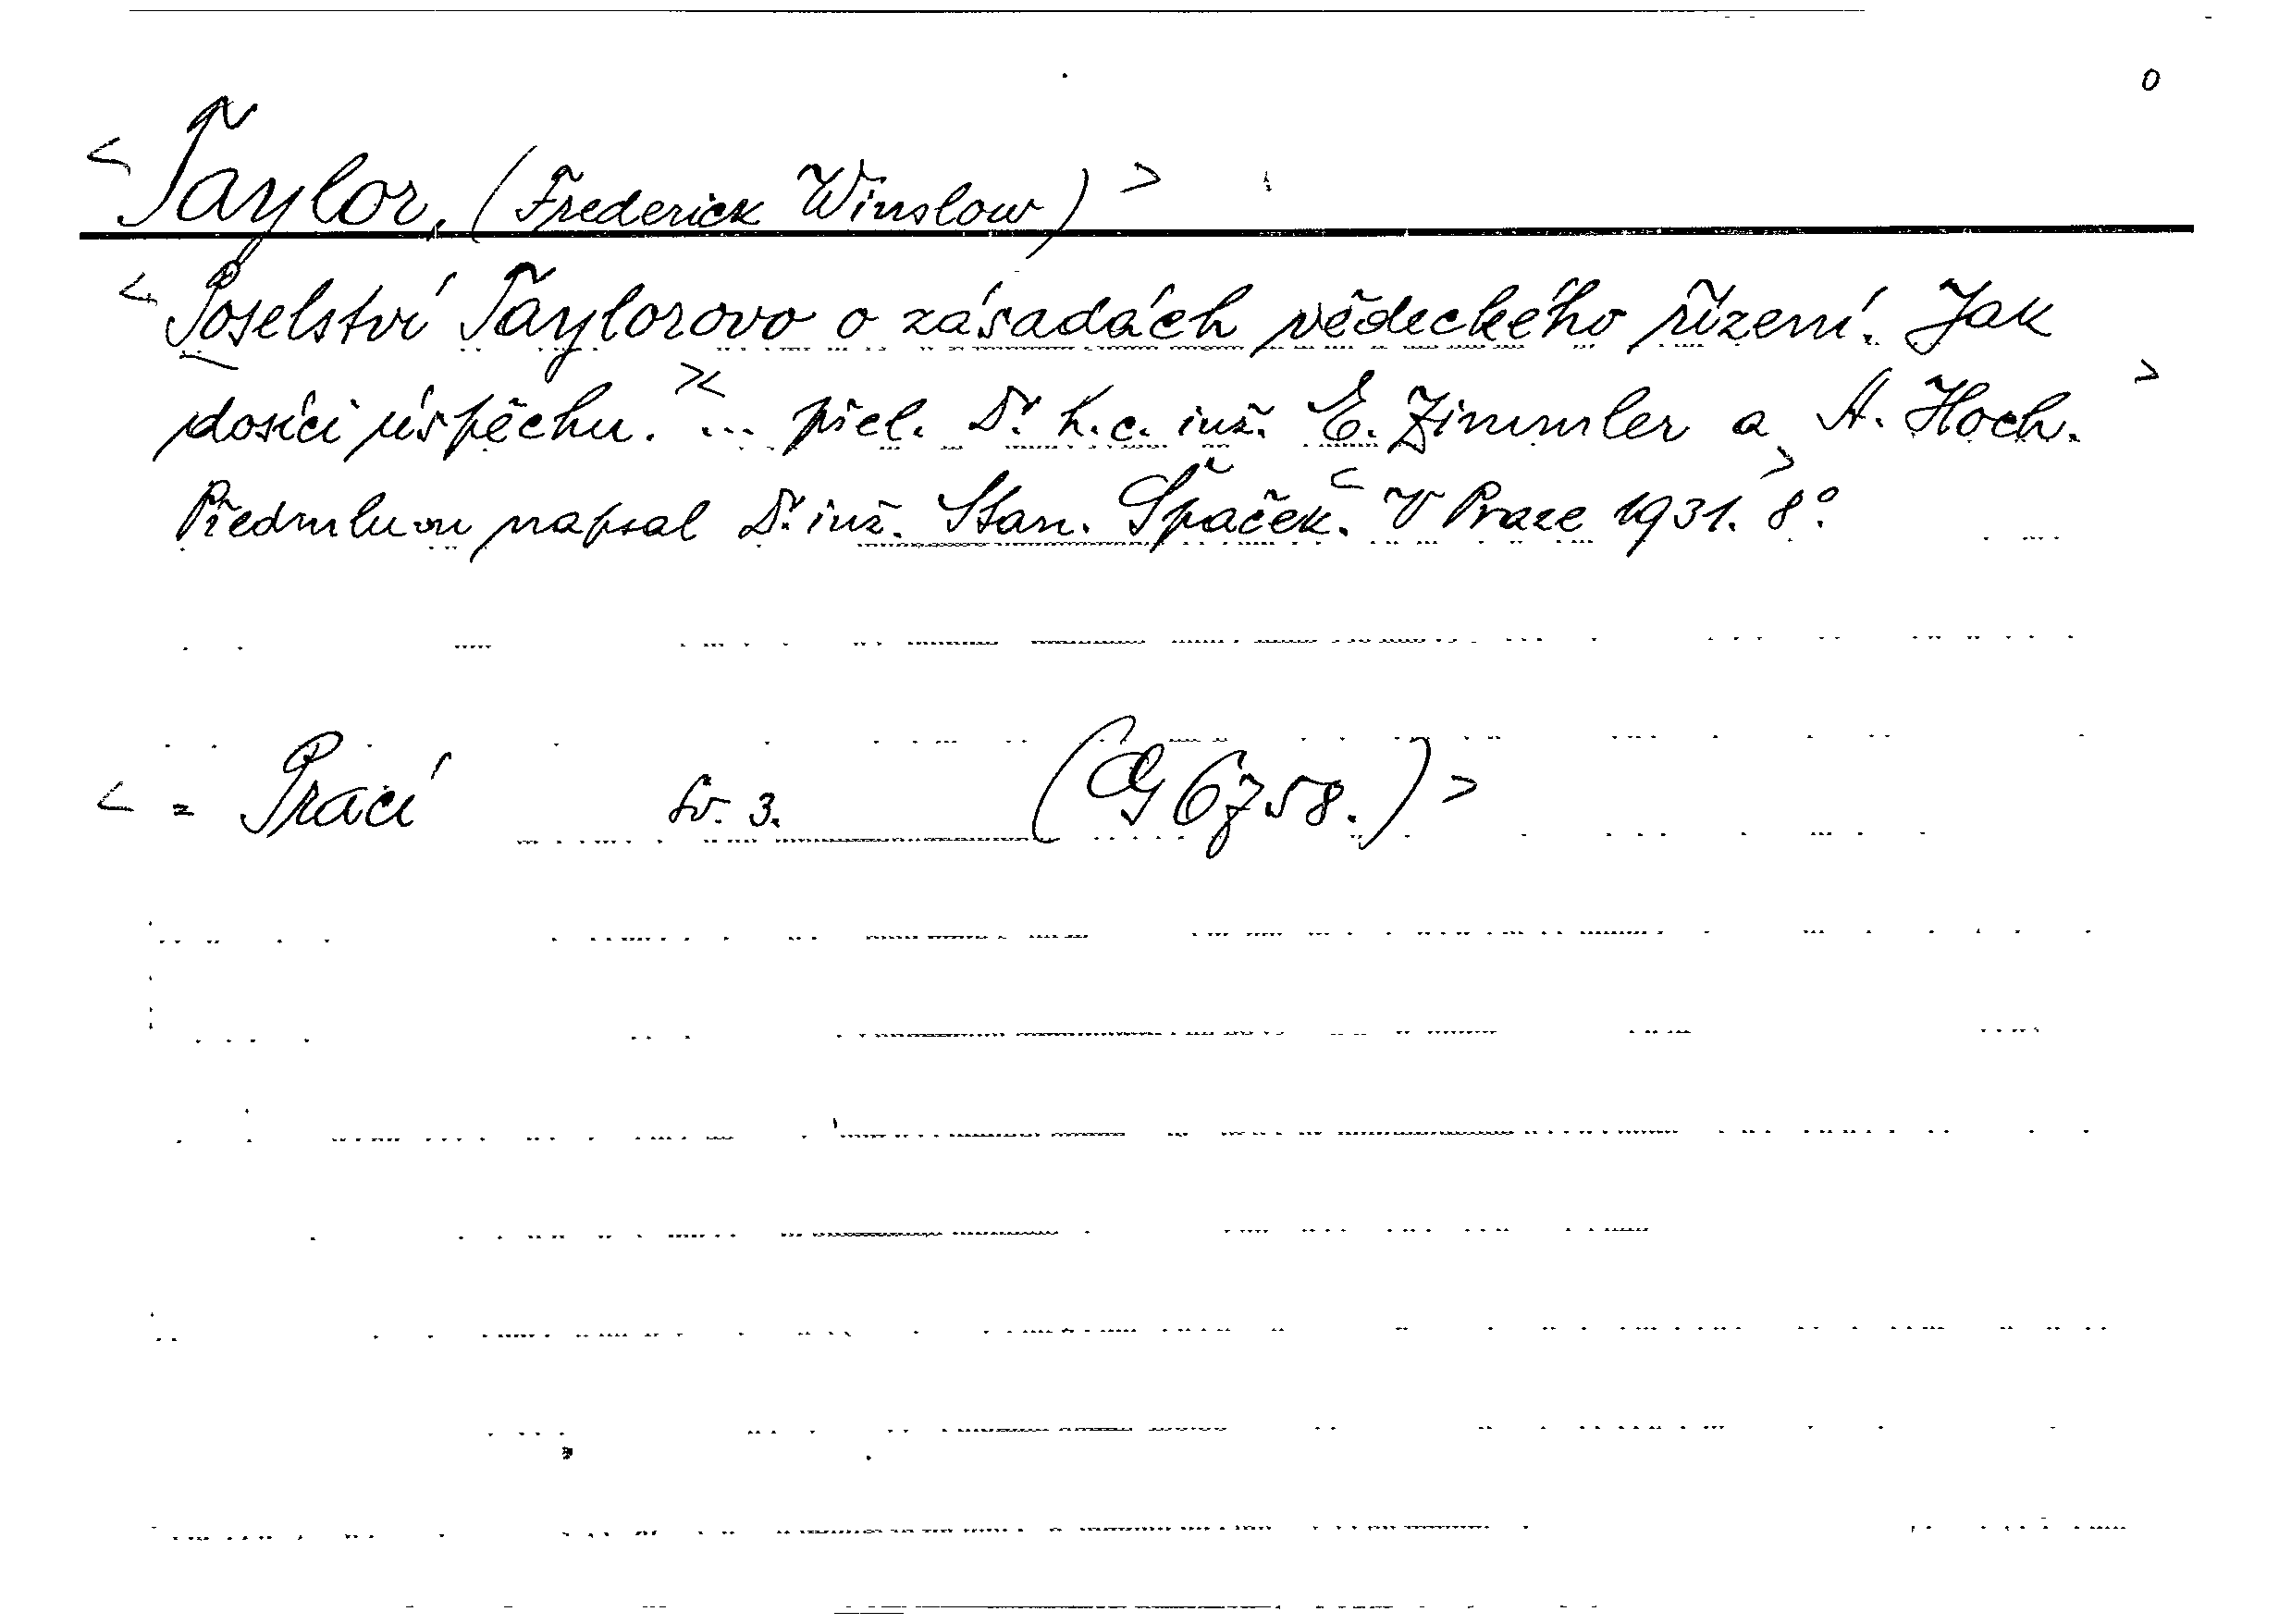 o
<Taylor, (Frederick Winslow)>
<Poselství Taylorovo o zásadách vědeckého řízení. Jak
dosíci úspěchu. >< ... přel. Dr. h. c. inž. E. Zimmler a A. Hoch.>
Předmluvu napsal Dr. inž. Stan. Špaček.< V Praze 1931. 8°.>
< = Prací sv. 3. (G 6758.)>